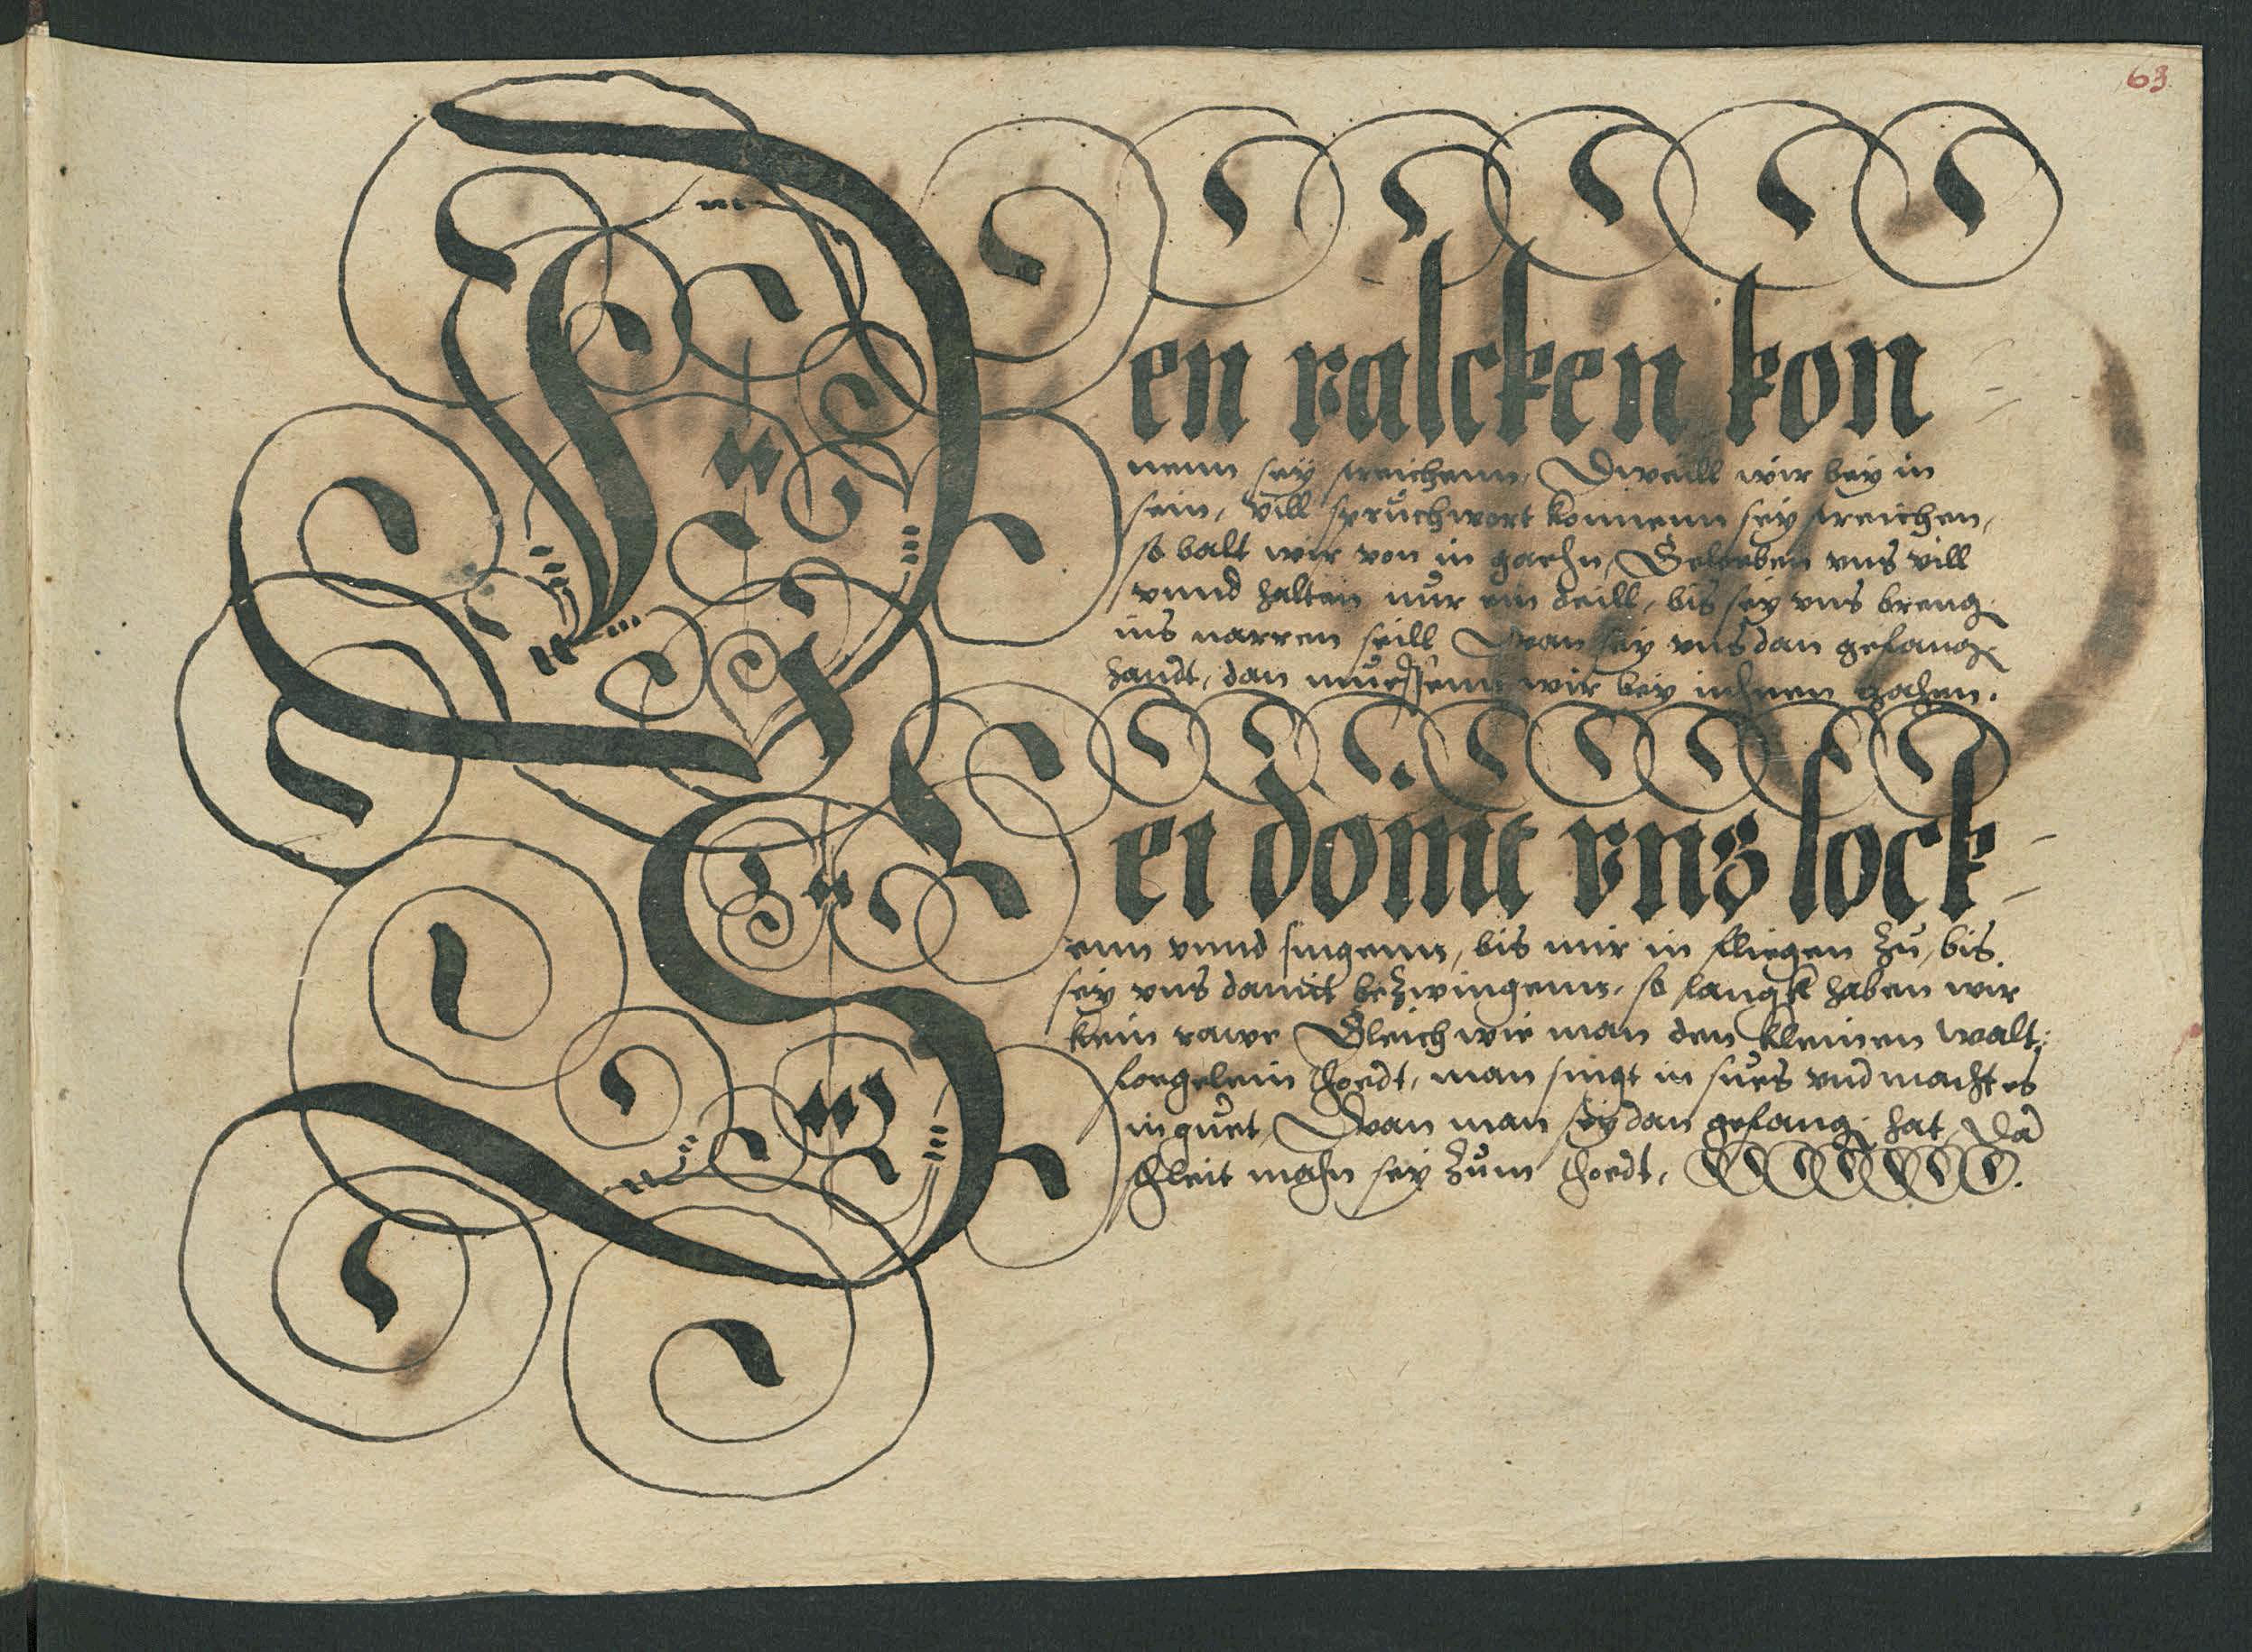 63
Den valcken kon
nenn sey streichenn, Dweill wir bey in
sein, vill spruchwort konnenn sey streichen,
so balt wir von in gaehn, Geloeben vns vill
vnnd halten nur ein deill, bis sey vns breng
ins narren seill Wan sey vns dan gefang
handt, dan muessenn wir bey ichnen gahen.
Sei dömit vns lock
enn vnnd singenn, bis mir in fliegen zu, bis
sey vns damit bezwingenn, so langk haben wir
kein rawe Gleich wie man den kleinen walt
foegelein thoedt, man singt in sues vnd macht es
in guet, Wan man sey dan gefang hat, Da
schleit mahn sey zum thoedt,